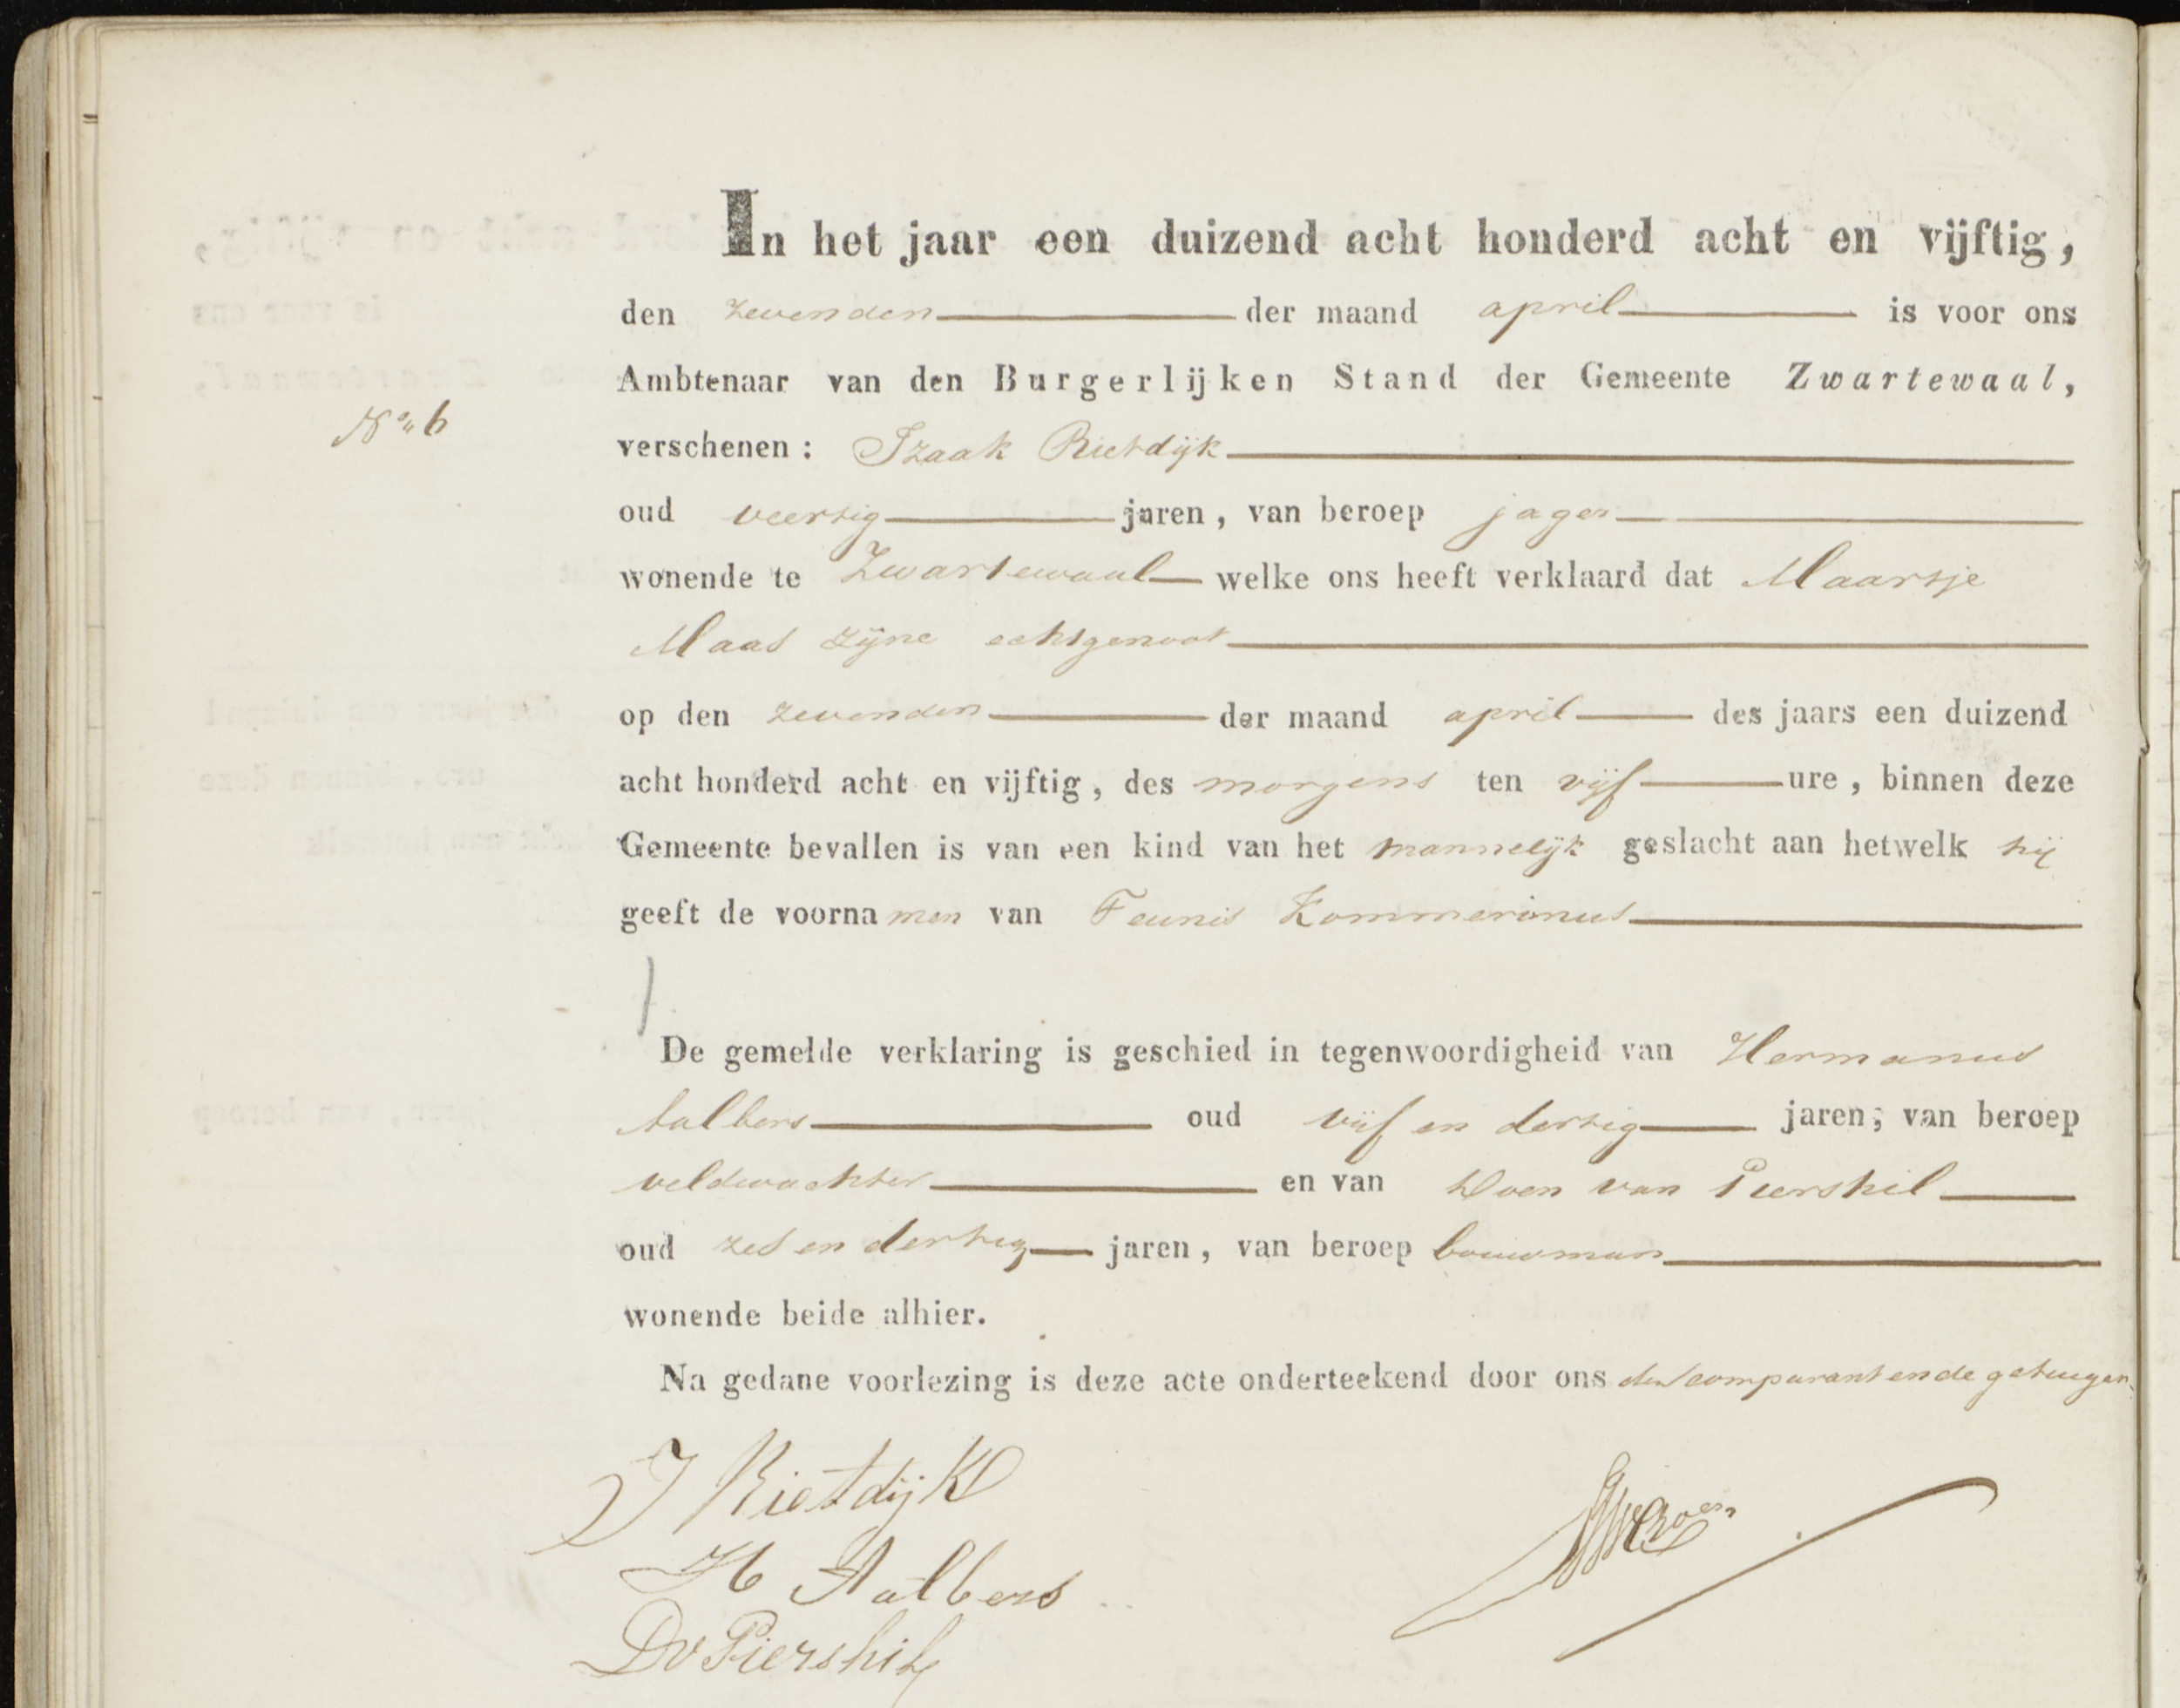 In het jaar een duizend acht honderd acht en vijftig,
den zevenden der maand april is voor ons
Ambtenaar van den Burgerlijken Stand der Gemeente Zwartewaal,
N° 6
verschenen: Izaak Rietdijk
oud veertig jaren, van beroep jager
wonende te Zwartewaal welke ons heeft verklaard dat Maartje
Maas zijne echtgenoot
op den zevenden der maand april des jaars een duizend
acht honderd acht en vijftig, des morgens ten vijf ure, binnen deze
Gemeente bevallen is van een kind van het mannelijk geslacht aan hetwelk hij
geeft de voornamen van Teunis Kommerinus
De gemelde verklaring is geschied in tegenwoordigheid van Hermanus
Aalbers oud vijf en dertig jaren, van beroep
veldwachter en van Doen van Piershil
oud zes en dertig jaren, van beroep bouwman
wonende beide alhier.
Na gedane voorlezing is deze acte onderteekend door ons den comparant en de getuigen.
I Rietdijk
H Aalbers
Dv Piershil